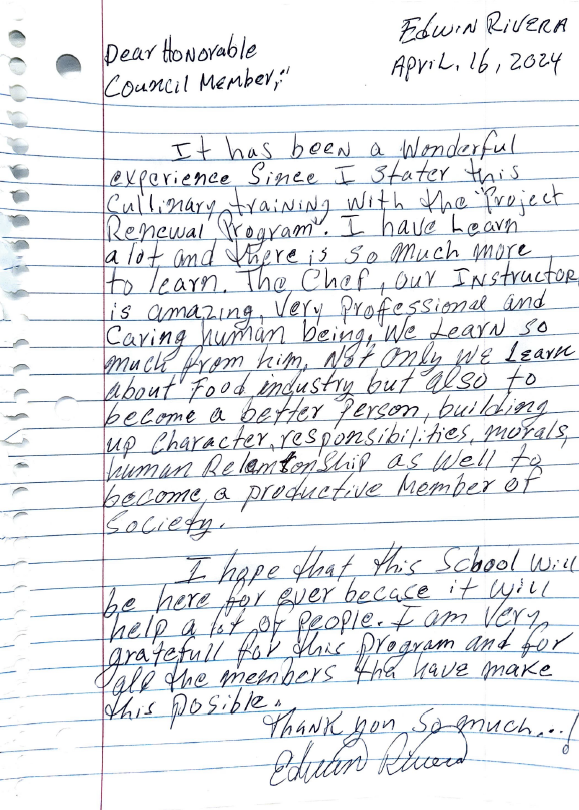 Edwin Rivera
April, 16, 2024
Dear Honorable
Council Member,:"
It has been a wonderful
experience Since I stater this
Cullinary training with the "Project
Renewal Program". I have Learn
a lot and there is so much more
to learn. The Chef, our Instructor,
is amazing, Very Professional and
Caring human being, We Learn so
much from him, Not only We Learn
about Food industry but also to
become a better Person, building
up Character, responsibilities, morals,
human Relationship as Well to
become a productive Member of
Society.
I hope that this School Will
be here for ever becase it will
help a lot of people. I am Very
gratefull for this program and for
all the members tha have make
this posible.
Thank you so much...!
Edwin Rivera